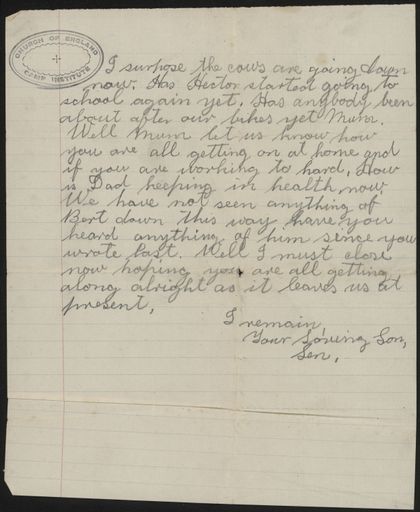 CHURCH OF ENGLAND
CAMP INSTITUTE
I surpose the cows are going down
now. Has Hector started going to
school again yet. Has anybody been
about after our bikes yet Mum.
Well Mum let us know how
you are all getting on at home and
if you are working to hard. How
is Dad keeping in health now
We have not seen anything of
Bert down this way have you
heard anything of him since you
wrote last. Well I must close
now hoping you are all getting
along alright as it leaves us at
present.
I remain,
Your Loving Son,
Len.